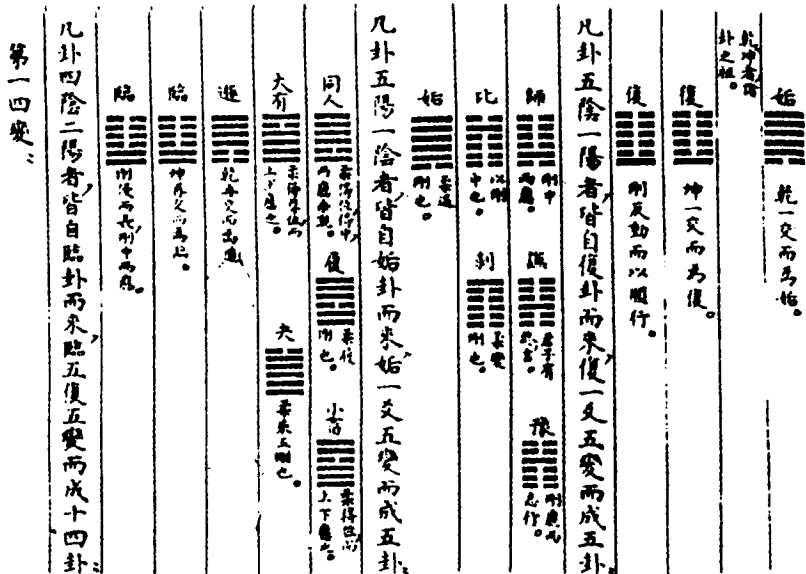 姤 乾一交而為姤。
乾坤者諸
卦之祖。
復 坤一交而為復。
復 剛反動而以順行。
凡卦五陰一陽者,皆自復卦而來,復一爻五變而成五卦:
師 剛中而應。 謙 君子有 豫 剛應而志行。
比 以剛中也。 剝 柔變剛也。
姤 柔遇剛也。
凡卦五陽一陰者,皆自姤卦而來,姤一爻五變而成五卦:
同人 柔得位得中而應乎乾。 履 柔履剛也。 小畜 柔得位而上下應之。
大有 柔得尊位而上下應也。 夬 柔乘五剛也。
遯 乾再交而為遯
臨 坤再交而為臨。
臨 剛浸而長,剛中而應。
凡卦四陰二陽者,皆自臨卦而來,臨五復五變而成十四卦:
第一四變: